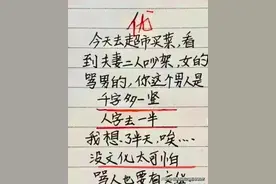 优
今天去超市买菜，看
到夫妻二人吵架，女的
骂男的，你这个男人是
千字多一竖
人字去一半
我想了半天，唉…
没文化太可怕
骂人也要有文化